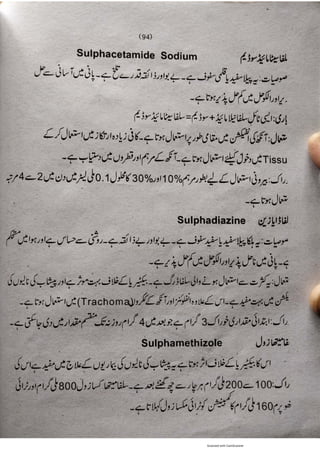 (94)
Sulphacetamide Sodium سلفاسیٹامائیڈ سوڈیم
خصوصیات: یہ پیلا سفید یا قلمی سفوف ہے۔ بے بو اور ذائقہ قدرے تلخ ہے۔ پانی میں آسانی سے حل
پذیر اور الکوحل میں کم حل پذیر ہوتا ہے۔
تیاری: ایسی ٹائل سلفانیلامائیڈ + سوڈیم = سلفاسیٹامائیڈ سوڈیم
استعمال: آنکھ کی انفیکشن میں مقامی طور پر استعمال ہوتا ہے۔ کافی زیادہ ارتکاز میں استعمال کر کے
Tissu میں دخول کیلئے استعمال ہوتا ہے۔ آنکھ کے مرہم اور قطروں میں دستیاب ہے۔
خوراک: بیرونی استعمال کے لیے بطور مرہم 10% اور 30% کا محلول 0.1 ملی لیٹر میں دن میں 2 سے 4 مرتبہ
استعمال ہوتا ہے۔
Sulphadiazine سلفاڈایازین
خصوصیات: یہ ہلکا پیلا سفید یا سفید سفوف ہے۔ بے بو اور بے ذائقہ ہے۔ روشنی سے حساس ہے اور ہوا میں مستحکم
ہے۔ پانی میں ناحل پذیر اور الکوحل میں کم حل پذیر ہے۔
استعمال: یہ کثرت سے استعمال ہونے والی سلفا ڈرگ ہے۔ بیکٹیریا کے خلاف بہت موثر ہے اور پیشاب کی نالیوں کی
انفیکشن میں بہت مفید ہے۔ اس کے علاوہ انفلوئنزا اور آنکھ کے ککروں (Trachoma) میں استعمال ہوتا ہے۔
خوراک: ابتدائی مقدار کی خوراک 3 گرام ہے جو بعد میں 4 گرام روزانہ تک منقسم مقدار میں دی جاسکتی ہے۔
Sulphamethizole سلفامیتھازول
اس کا بیکٹیریا کے خلاف اثر ہوتا ہے یہ پیشاب کی نالیوں کی بیماریوں کے علاج میں مفید ہے اس کی
خوراک: 100 سے 200 ملی گرام ہر چار سے چھ گھنٹے بعد ہے۔ سلفامیتھاکسازول 800 ملی گرام اور ٹرائی
میتھوپرم 160 ملی گرام کا کمبینیشن کوٹرائی مکسازول کہلاتا ہے۔
Scanned with CamScanner